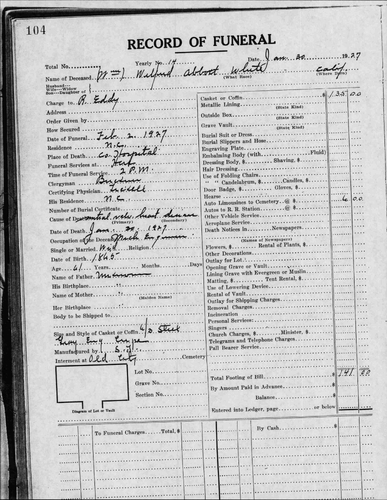 104
RECORD OF FUNERAL
Total No. Yearly No. 14 Date Jan 30 1927
Name of Deceased Walfred Abbott White Calif
(What Race) (Where Born)
Husband—
Wife—Widow
Son—Daughter of
Charge to R. Eddy
Address
Order Given by
How Secured
Date of Funeral Feb 2, 1927
Residence N.C.
Place of Death Co. Hospital
Funeral Services at
Time of Funeral Service 2 P.M.
Clergyman
Certifying Physician
His Residence N.C.
Number of Burial Certificate
Cause of Death heart disease
(Secondary)
Date of Death Jan. 30, 1927
Occupation of the Deceased
Single or Married Wid Religion
Date of Birth 1865
Age 61 Years Months Days
Name of Father Unknown
His Birthplace
Name of Mother
(Maiden Name)
Her Birthplace
Body to be Shipped to
Size and Style of Casket or Coffin 6/0
Grey
Manufactured by S.F.
Interment at Old City Cemetery
Lot No.
Grave No.
Section No.
Diagram of Lot or Vault
Casket or Coffin 135 00
(State Kind)
Metallic Lining
Outside Box
(State Kind)
Grave Vault
(State Kind)
Burial Suit or Dress
Burial Slippers and Hose
Engraving Plate
Embalming Body (with Fluid)
Dressing Body, $ Shaving, $
Hair Dressing
Use of Folding Chairs
" " Candelabrum, $ Candles, $
Door Badge, $ Gloves, $
Hearse
Auto Limousines to Cemetery @ $ 6 00
Autos to R. R. Station @ $
Other Vehicle Service
Aeroplane Service
Death Notices in Newspapers
(Names of Newspapers)
Flowers, $ Rental of Plants, $
Other Decorations
Outlay for Lot
Opening Grave or Vault
Lining Grave with Evergreen or Muslin
Matting, $ Tent Rental, $
Use of Lowering Device
Rental of Vault
Outlay for Shipping Charges
Removal Charges
Incineration
Personal Services
Singers
Church Charges, $ Minister, $
Telegrams and Telephone Charges
Pall Bearer Service
Total Footing of Bill 141 00
By Amount Paid in Advance
Balance
Entered into Ledger, page or below
To Funeral Charges Total, $ By Cash $